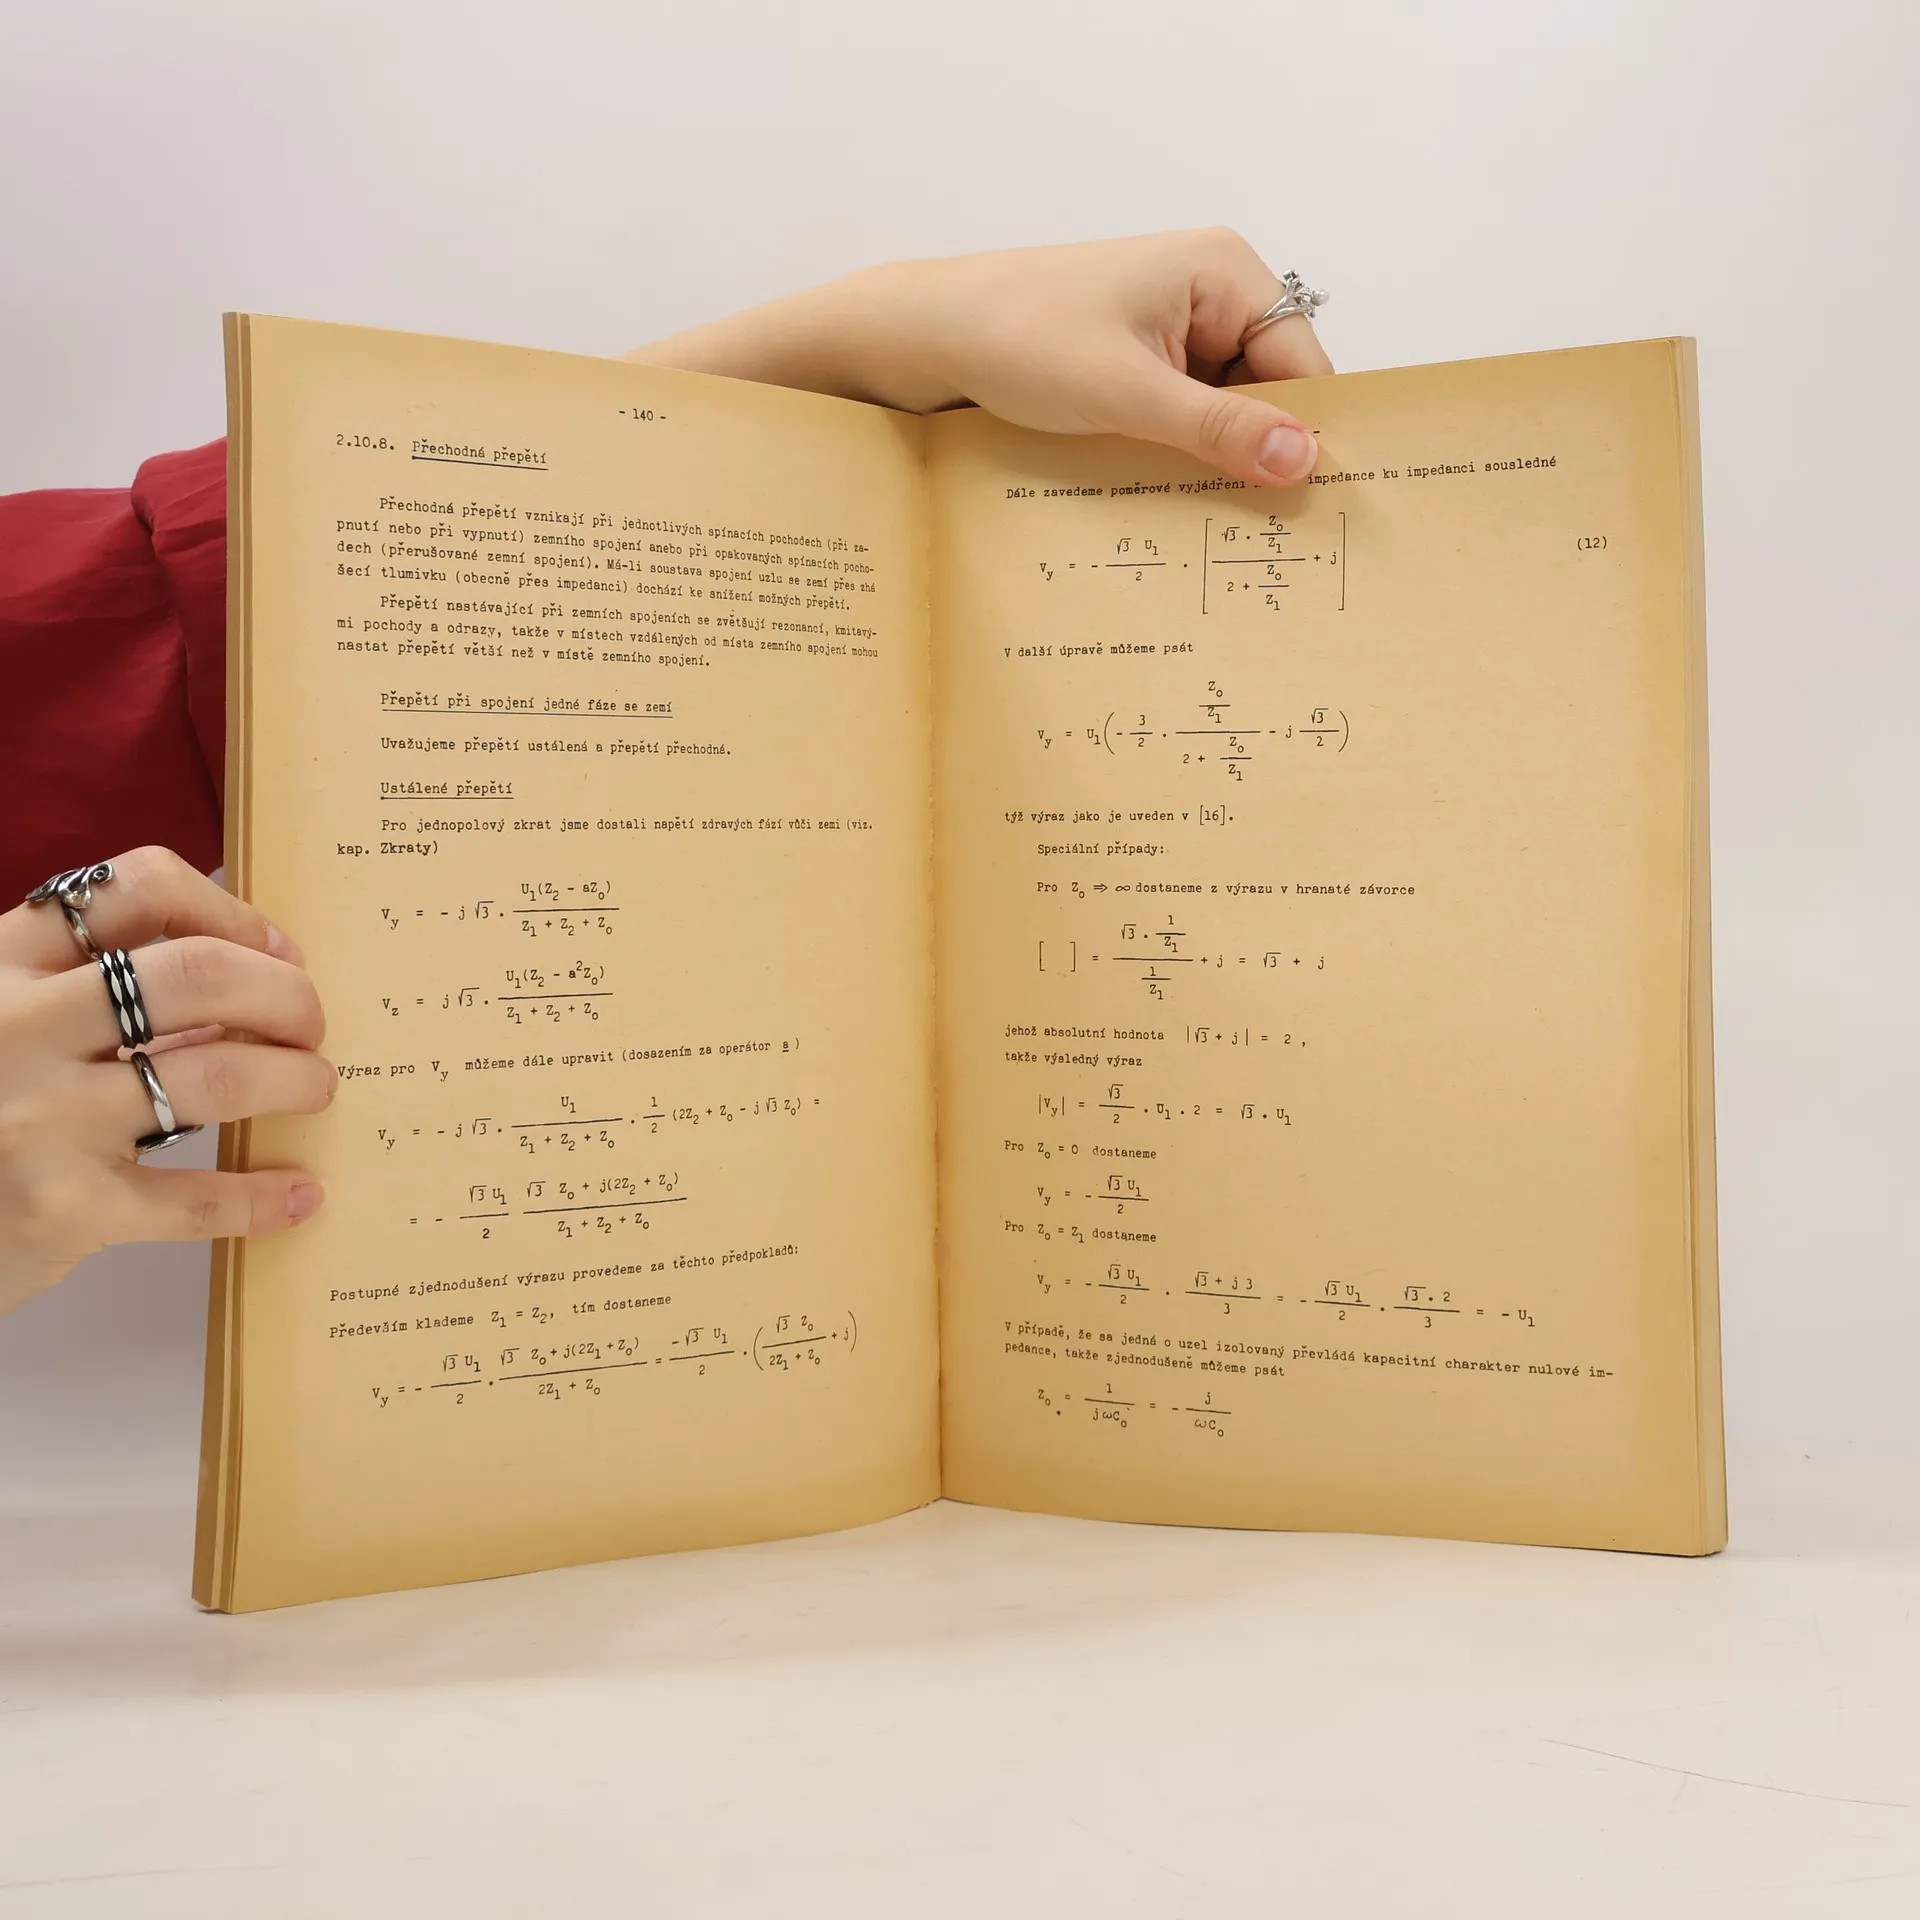 - 140 -
2.10.8. Přechodná přepětí
Přechodná přepětí vznikají při jednotlivých spínacích pochodech (při za-
pnutí nebo při vypnutí) zemního spojení anebo při opakovaných spínacích pocho-
dech (přerušované zemní spojení). Má-li soustava spojení uzlu se zemí přes zhá
šecí tlumivku (obecně přes impedanci) dochází ke snížení možných přepětí.
Přepětí nastávající při zemních spojeních se zvětšují rezonancí, kmitavý-
mi pochody a odrazy, takže v místech vzdálených od místa zemního spojení mohou
nastat přepětí větší než v místě zemního spojení.
Přepětí při spojení jedné fáze se zemí
Uvažujeme přepětí ustálená a přepětí přechodná.
Ustálené přepětí
Pro jednopolový zkrat jsme dostali napětí zdravých fází vůči zemi (viz.
kap. Zkraty)
V_y = - j √3 . U_1(Z_2 - aZ_o) / (Z_1 + Z_2 + Z_o)
V_z = j √3 . U_1(Z_2 - a²Z_o) / (Z_1 + Z_2 + Z_o)
Výraz pro V_y můžeme dále upravit (dosazením za operátor a )
V_y = - j √3 . U_1 / (Z_1 + Z_2 + Z_o) . 1/2 (2Z_2 + Z_o - j √3 Z_o) =
= - √3 U_1 / 2 (√3 Z_o + j(2Z_2 + Z_o)) / (Z_1 + Z_2 + Z_o)
Postupné zjednodušení výrazu provedeme za těchto předpokladů:
Především klademe Z_1 = Z_2, tím dostaneme
V_y = - √3 U_1 / 2 . (√3 Z_o + j(2Z_1 + Z_o)) / (2Z_1 + Z_o) = - √3 U_1 / 2 . (√3 Z_o / (2Z_1 + Z_o) + j)
-
Dále zavedeme poměrové vyjádření impedance ku impedanci sousledné
V_y = - √3 U_1 / 2 . [ (√3 . Z_o/Z_1) / (2 + Z_o/Z_1) + j ] (12)
V další úpravě můžeme psát
V_y = U_1 ( - 3/2 . (Z_o/Z_1) / (2 + Z_o/Z_1) - j √3/2 )
týž výraz jako je uveden v [16].
Speciální případy:
Pro Z_o ⇒ ∞ dostaneme z výrazu v hranaté závorce
[ ] = (√3 . 1/Z_1) / (1/Z_1) + j = √3 + j
jehož absolutní hodnota |√3 + j| = 2 ,
takže výsledný výraz
|V_y| = √3/2 . U_1 . 2 = √3 . U_1
Pro Z_o = 0 dostaneme
V_y = - √3 U_1 / 2
Pro Z_o = Z_1 dostaneme
V_y = - √3 U_1 / 2 . (√3 + j 3) / 3 = - √3 U_1 / 2 . √3 . 2 / 3 = - U_1
V případě, že sa jedná o uzel izolovaný převládá kapacitní charakter nulové im-
pedance, takže zjednodušeně můžeme psát
Z_o = 1 / jωC_o = - j / ωC_o